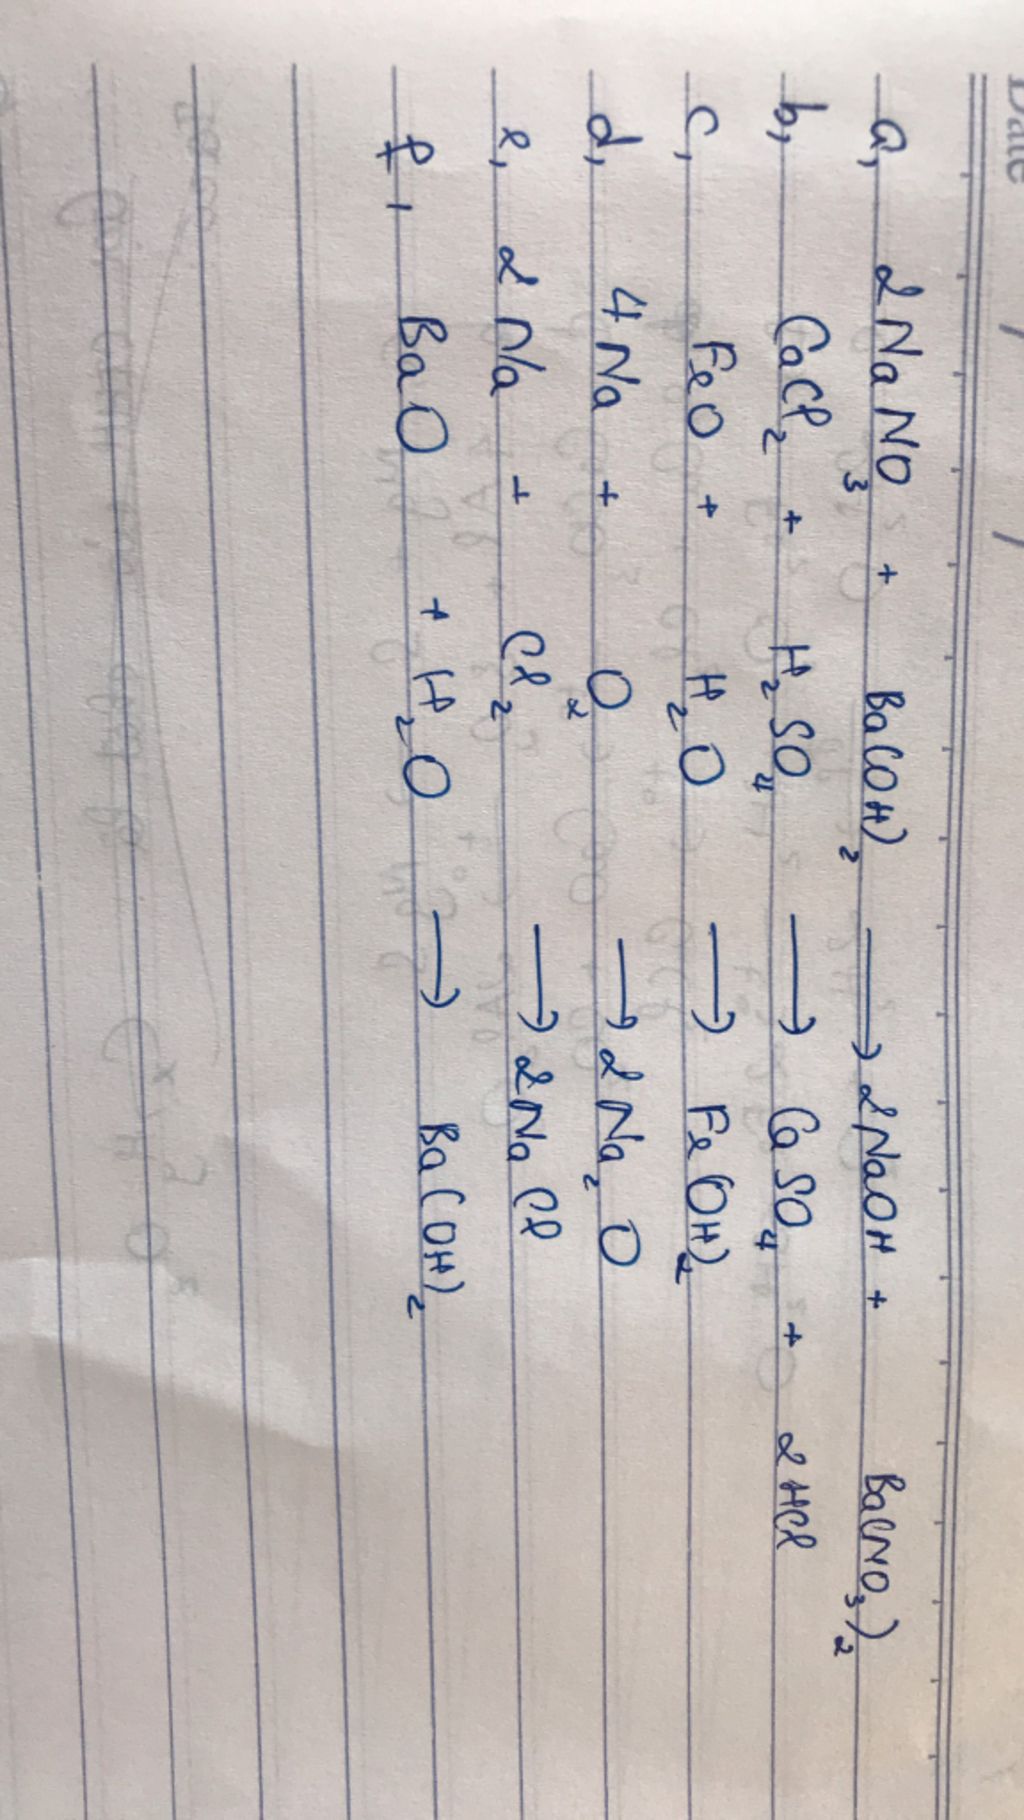 Date / /
a, 2NaNO₃ + Ba(OH)₂ → 2NaOH + Ba(NO₃)₂
b, CaCl₂ + H₂SO₄ → CaSO₄ + 2HCl
c, FeO + H₂O → Fe(OH)₂
d, 4Na + O₂ → 2Na₂O
e, 2Na + Cl₂ → 2NaCl
f, BaO + H₂O → Ba(OH)₂